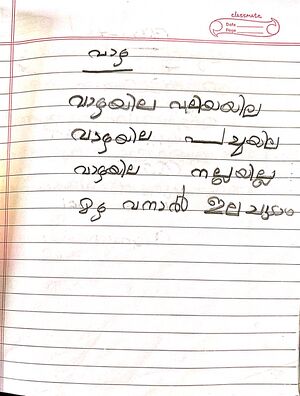 classmate
Date
Page
വാഴ
വാഴയില വലിയയില
വാഴയില പച്ചയില
വാഴയില നല്ലയില്ല
മഴ വന്നാൽ ഇല ചൂടാം